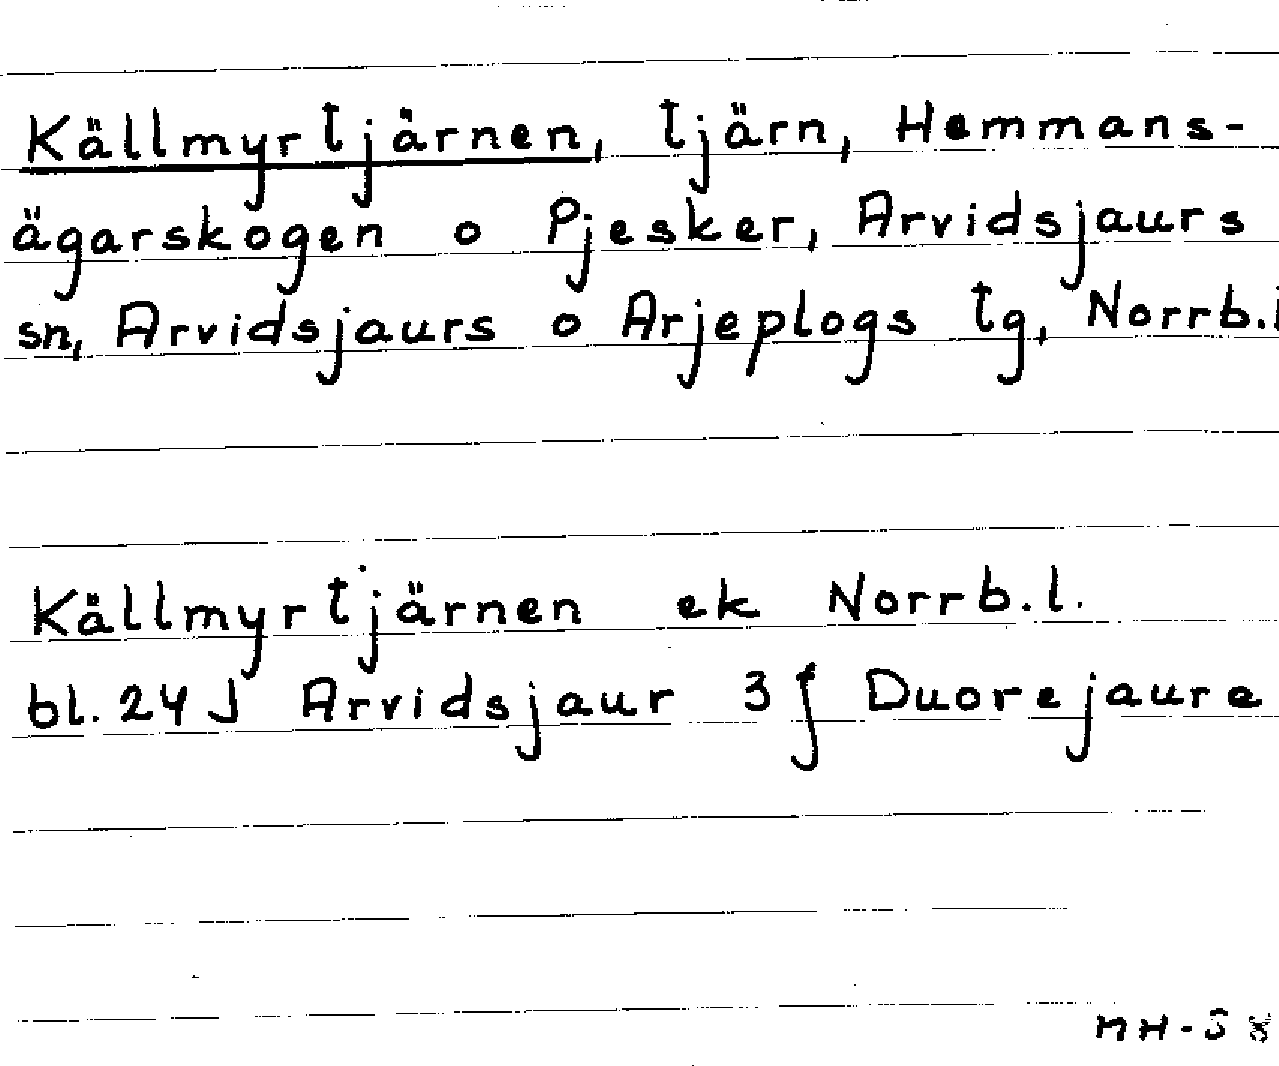 Källmyrtjärnen, tjärn, Hemmans-
ägarskogen o Pjesker, Arvidsjaurs
sn, Arvidsjaurs o Arjeplogs tg, Norrb.l
Källmyrtjärnen ek Norrb.l.
bl. 24J Arvidsjaur 3f Duorejaure